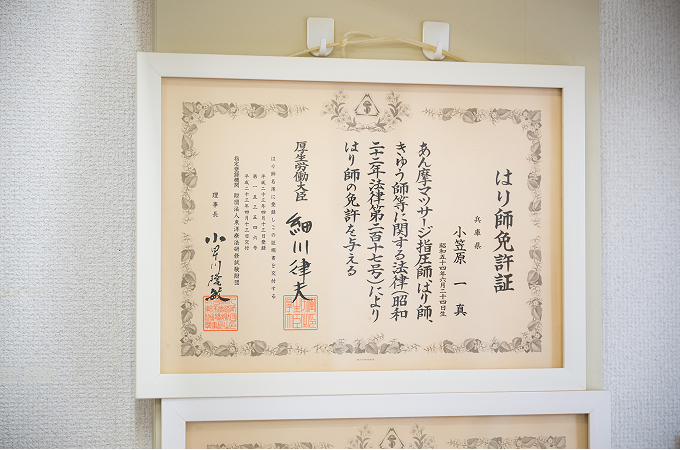 はり師免許証
兵庫県
小笠原 一真
昭和五十四年六月二十四日生
あん摩マツサージ指圧師、はり師、
きゆう師等に関する法律（昭和
二十二年法律第二百十七号）により
はり師の免許を与える
厚生労働大臣 細川律夫
はり師名簿に登録しこの証明書を交付する
平成二十三年四月十三日登録
第一五三五四六号
平成二十三年四月十三日交付
指定登録機関 財団法人東洋療法研修試験財団
理事長 小早川隆敏